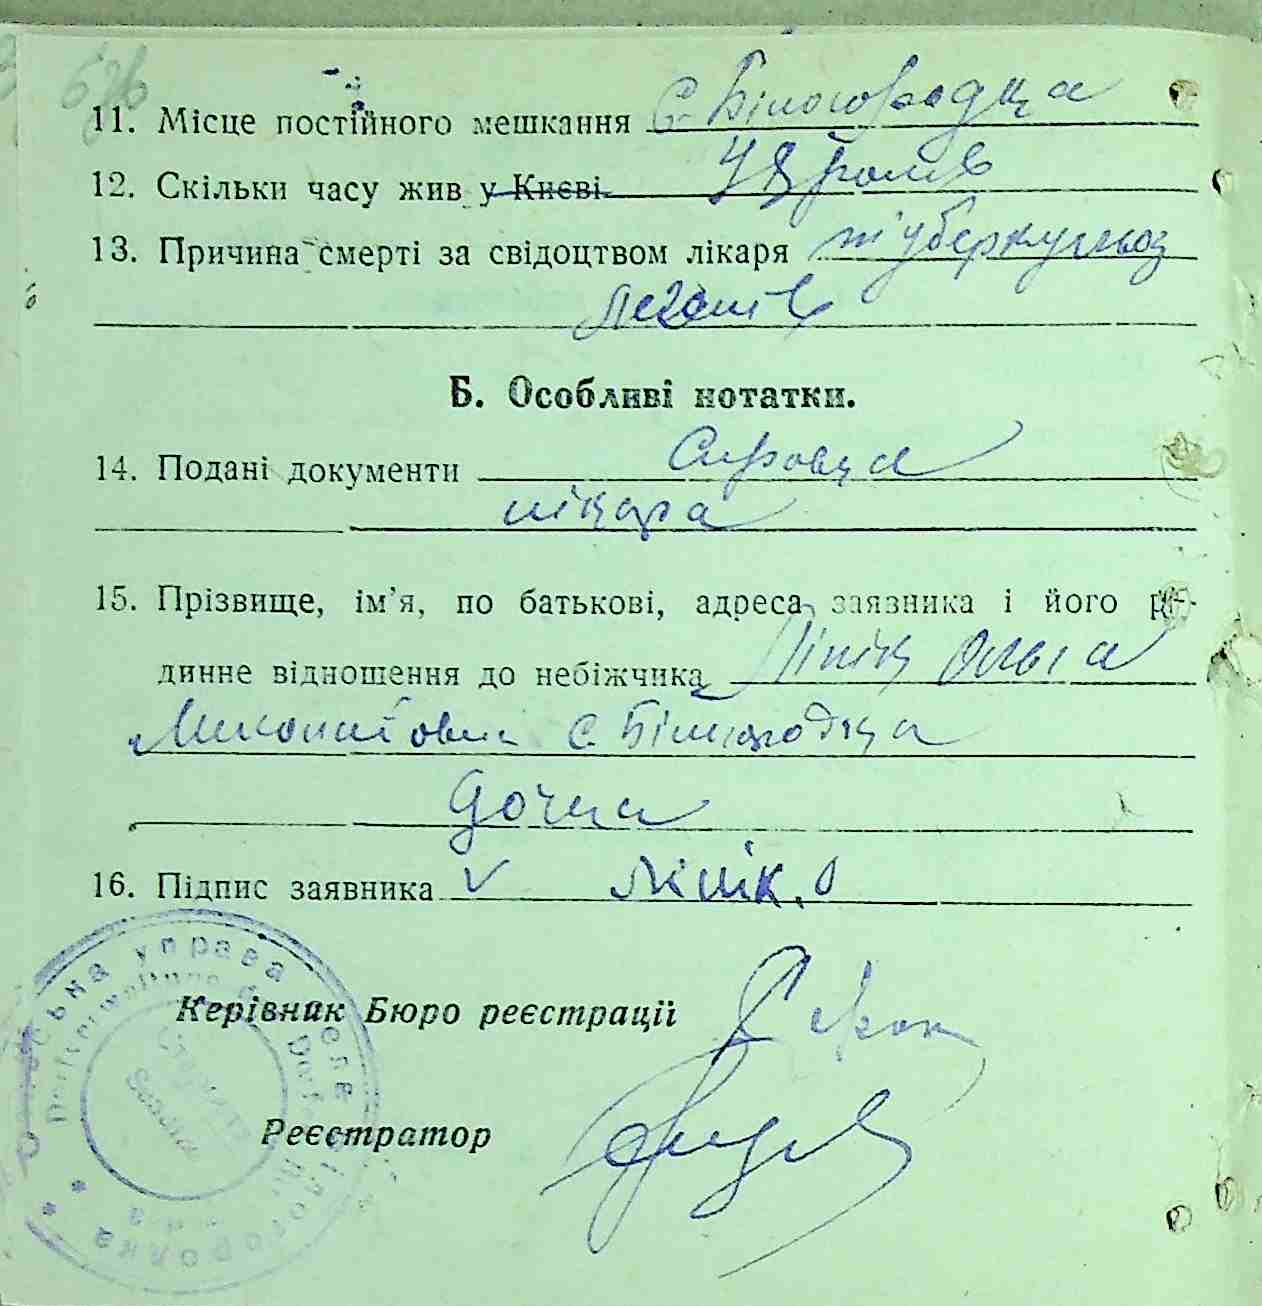 11. Місце постійного мешкання с. Білогородка
12. Скільки часу жив у Києві 48 років
13. Причина смерті за свідоцтвом лікаря туберкульоз
легенів
Б. Особливі нотатки.
14. Подані документи Справка
лікаря
15. Прізвище, ім'я, по батькові, адреса заявника і його ро-
динне відношення до небіжчика Ліпік Ольга
Миколаївна с. Білогородка
дочка
16. Підпис заявника V Ліпік. О
Керівник Бюро реєстрації
Реєстратор
управа села Білогородка